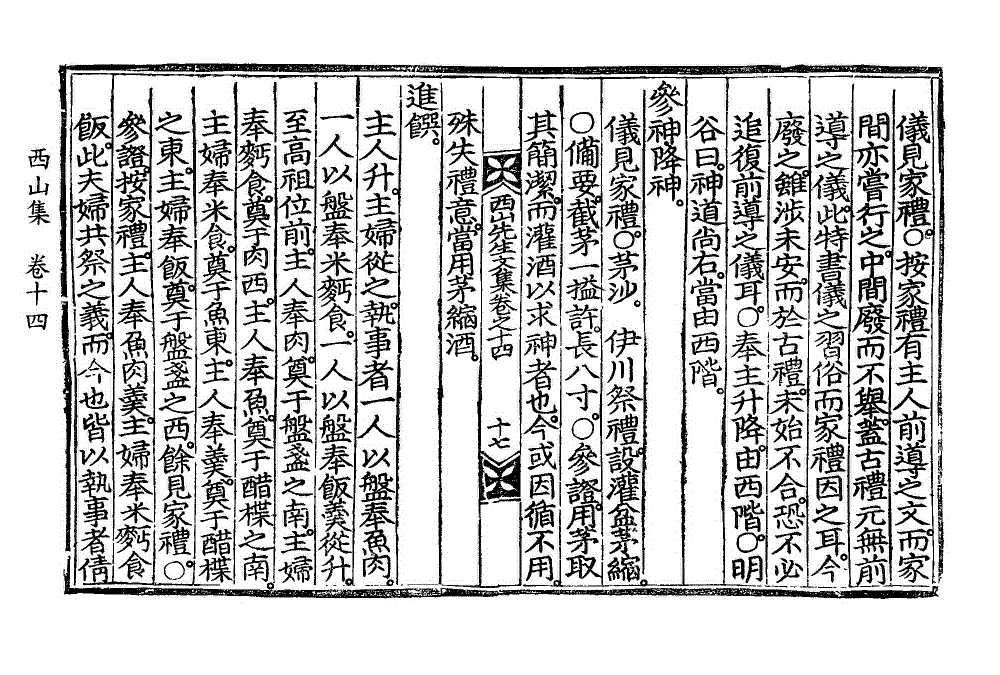 儀見家禮。○按家禮有主人前導之文。而家
間亦嘗行之。中間廢而不擧。蓋古禮元無前
導之儀。此特書儀之習俗而家禮因之耳。今
廢之。雖涉未安。而於古禮。未始不合。恐不必
追復前導之儀耳。○奉主升降。由西階。○明
谷曰。神道尙右。當由西階。
參神降神。
儀見家禮。○茅沙。 伊川祭禮。設灌盆茅縮。
○備要。截茅一搤許。長八寸。○參證。用茅取
其簡潔。而灌酒以求神者也。今或因循不用。
西山先生文集卷之十四 十七
殊失禮意。當用茅縮酒。
進饌。
主人升。主婦從之。執事者一人以盤奉魚肉。
一人以盤奉米麪食。一人以盤奉飯羹從升。
至高祖位前。主人奉肉。奠于盤盞之南。主婦
奉麪食。奠于肉西。主人奉魚。奠于醋楪之南。
主婦奉米食。奠于魚東。主人奉羹。奠于醋楪
之東。主婦奉飯。奠于盤盞之西。餘見家禮。○
參證。按家禮。主人奉魚肉羹。主婦奉米麪食
飯。此夫婦共祭之義。而今也皆以執事者倩
西山集 卷十四